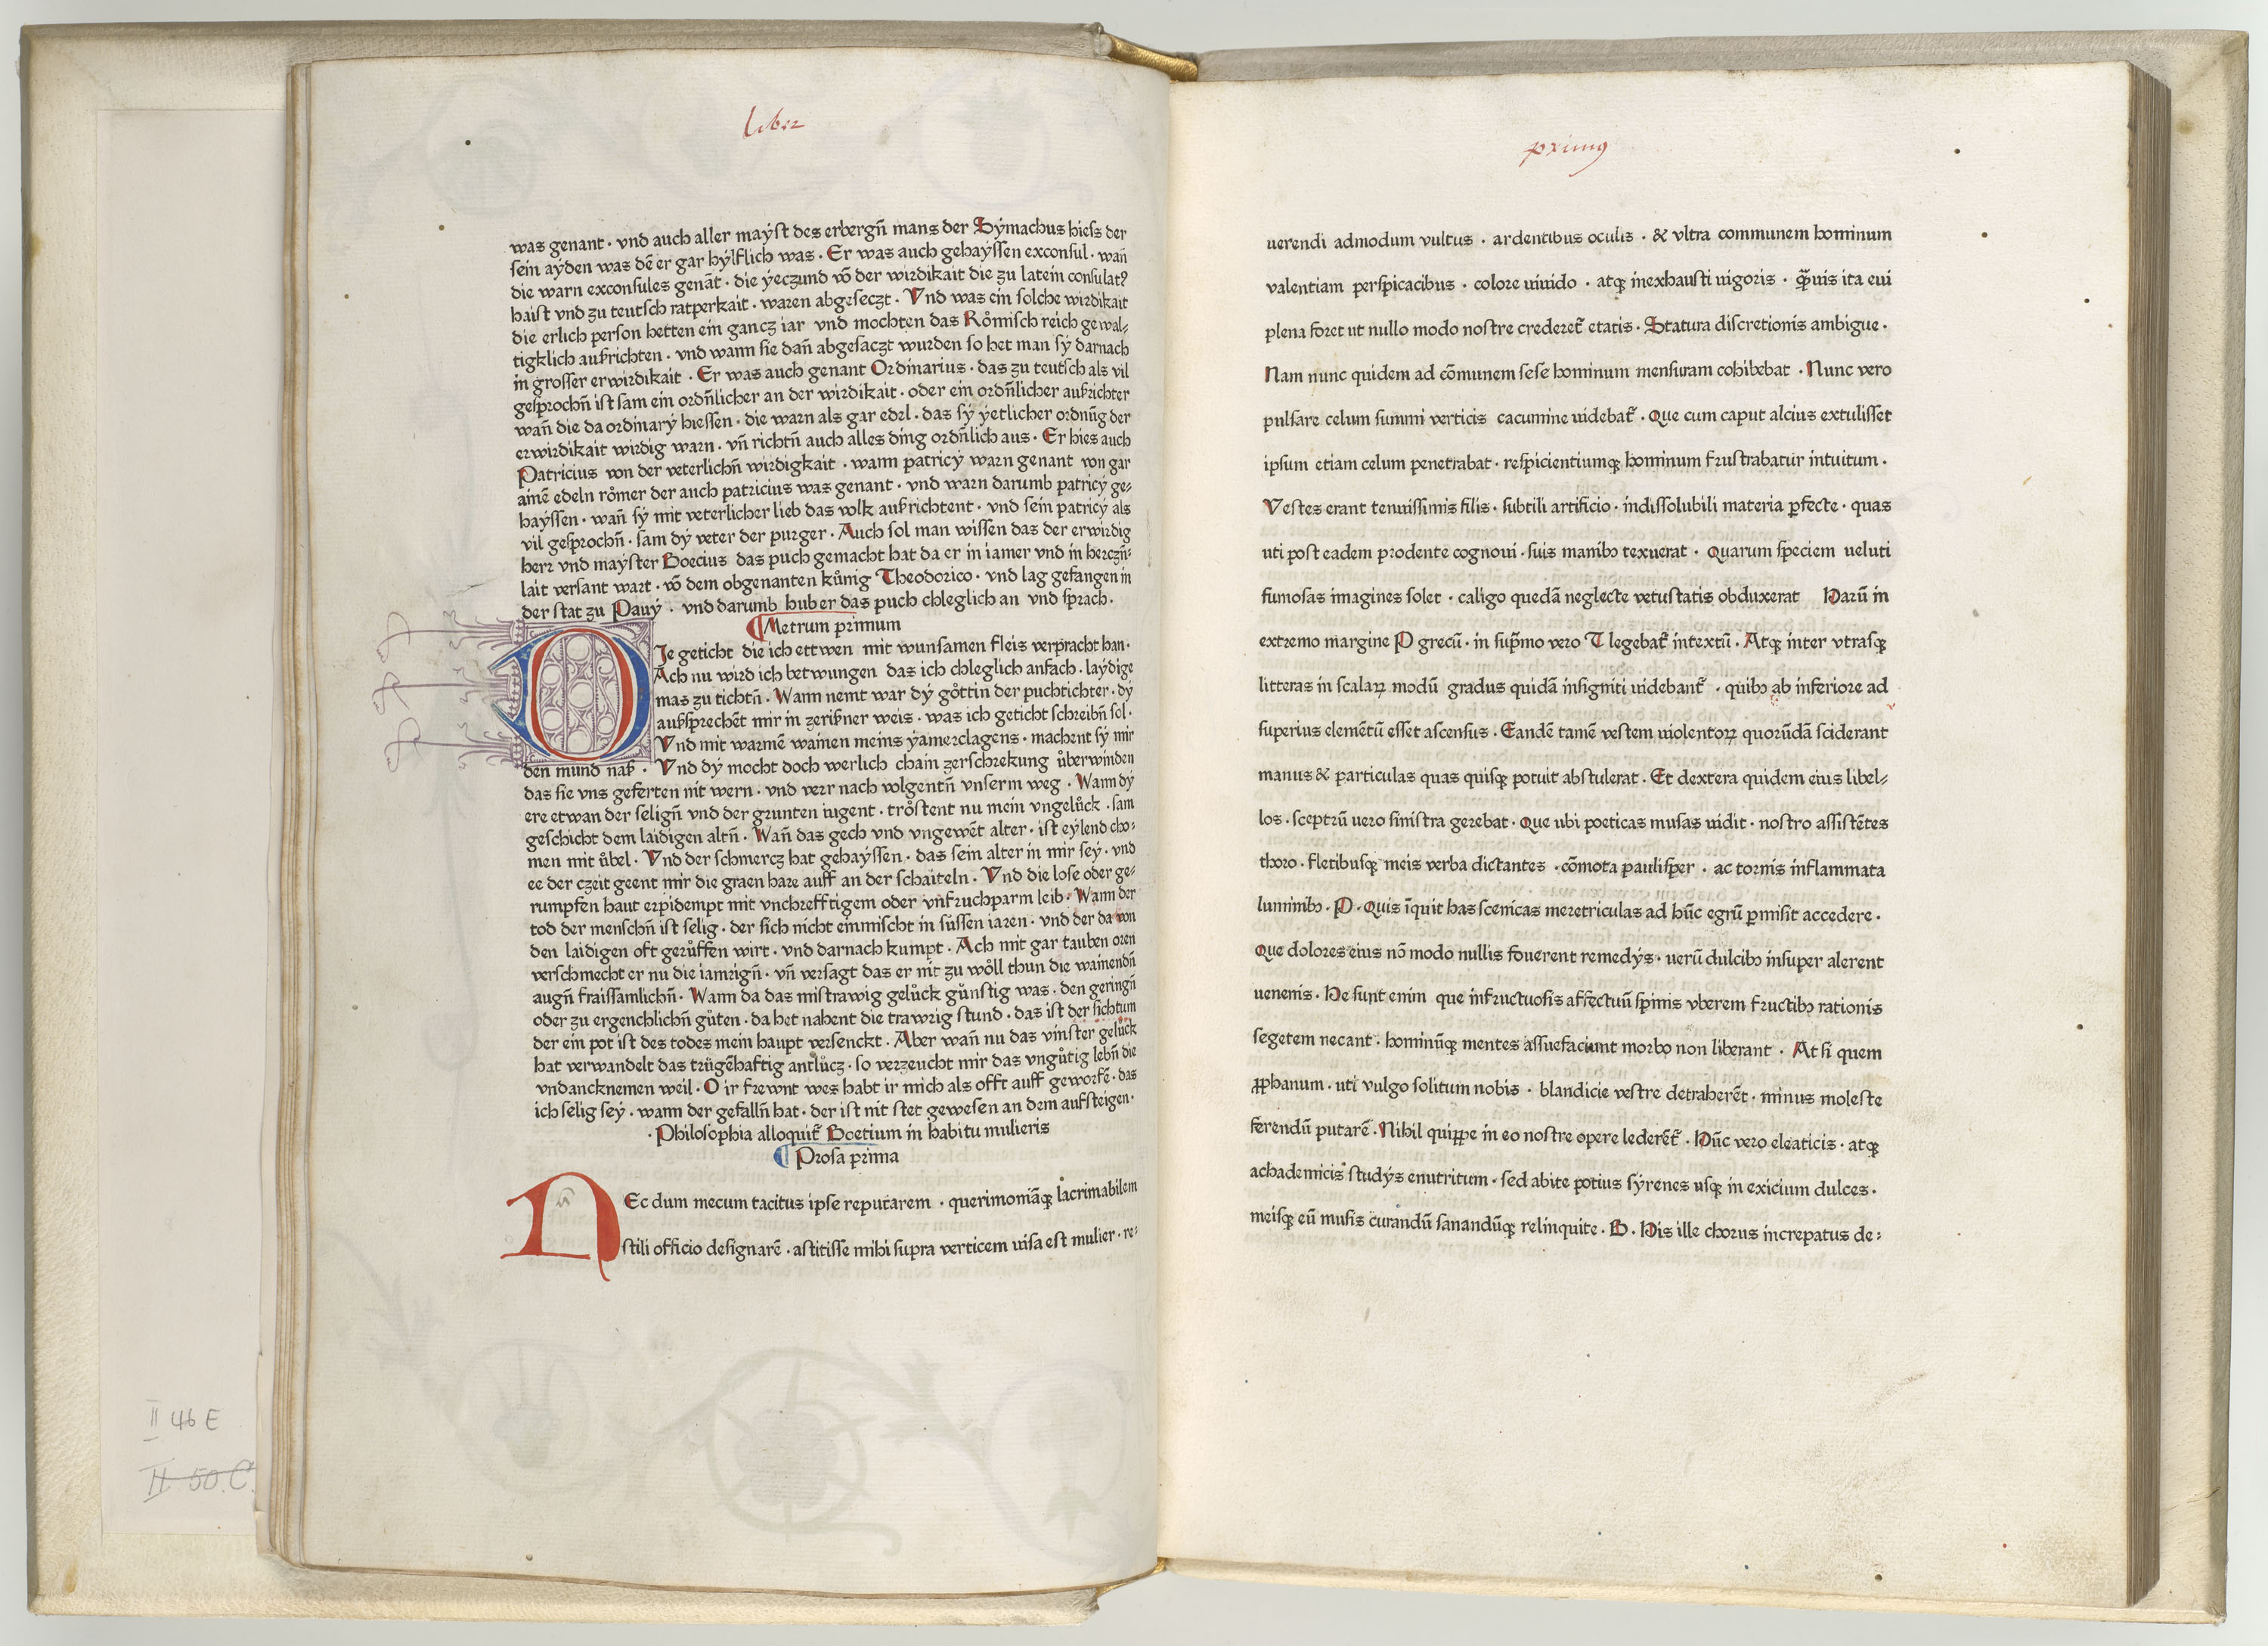 liber
was genant · vnd auch aller maÿst des erbergñ mans der Sÿmachus hiess der
sein aÿden was dē er gar hÿlflich was · Er was auch gehayssen exconsul · wañ
die warn exconsules genāt · die ÿeczund vō der wirdikait die zu latein consulat?
haist vnd zu teutsch ratperkait · waren abgeseczt · Vnd was ein solche wirdikait
die erlich person hetten ein gancz iar vnd mochten das Rǒmisch reich gewal⸗
tigklich aufrichten · vnd wann sie dañ abgesaczt wurden so het man sÿ darnach
in grosser erwirdikait · Er was auch genant Ordinarius · das zu teutsch als vil
gesprochñ ist sam ein ordñlicher an der wirdikait · oder ein ordñlicher aufrichter
wañ die da ordinarÿ hiessen · die warn als gar edel · das sÿ ÿetlicher ordnūg der
erwirdikait wirdig warn · vñ richtñ auch alles ding ordñlich aus · Er hies auch
Patricius von der veterlichñ wirdigkait · wann patricÿ warn genant von gar
ainē edeln rǒmer der auch patricius was genant · vnd warn darumb patricÿ ge⸗
haÿssen · wañ sÿ mit veterlicher lieb das volk aufrichtent · vnd sein patricÿ als
vil gesprochñ · sam dÿ veter der purger · Auch sol man wissen das der erwirdig
herr vnd maÿster Boecius das puch gemacht hat da er in iamer vnd in herczñ⸗
lait versant wart · vō dem obgenanten kǔnig Theodorico · vnd lag gefangen in
der stat zu Pauÿ · vnd darumb hub er das puch chleglich an vnd sprach.
Metrum primum
DIe geticht die ich ettwen mit wunsamen fleis verpracht han·
Ach nu wird ich betwungen das ich chleglich anfach · laÿdige
mas zu tichtñ · Wann nemt war dÿ gǒttin der puchtichter · dÿ
aufsprechēt mir in zerisner weis · was ich geticht schreibñ sol ·
Vnd mit warmē wainen meins ÿamerclagens · machent sÿ mir
den mund nas · Vnd dÿ mocht doch werlich chain zerschrekung ǔberwinden
das sie vns geferten nit wern · vnd verr nach volgentñ vnserm weg · Wann dÿ
ere etwan der seligñ vnd der grunten iugent · trǒstent nu mein vngelǔck · sam
geschicht dem laidigen altñ · Wañ das gech vnd vngewēt alter · ist eÿlend cho⸗
men mit ǔbel · Vnd der schmercz hat gehaÿssen · das sein alter in mir seÿ · vnd
ee der czeit geent mir die graen hare auff an der schaiteln · Vnd die lose oder ge⸗
rumpfen haut erpidempt mit vnchrefftigem oder vnfruchparm leib · Wann der
tod der menschñ ist selig · der sich nicht einmischt in sůssen iaren · vnd der da von
den laidigen oft gerǔffen wirt · vnd darnach kumpt · Ach mit gar tauben oren
verschmecht er nu die iamrigñ · vñ versagt das er nit zu wǒll thun die wainendñ
augñ fraissamlichñ · Wann da das mistrawig gelǔck gǔnstig was · den geringñ
oder zu ergenchlichñ gǔten · da het nahent die trawrig stund · das ist der sichtum
der ein pot ist des todes mein haupt versenckt · Aber wañ nu das vinster gelǔck
hat verwandelt das trůgēhaftig antlǔcz · so verzeucht mir das vngǔtig lebñ die
vndancknemen weil · O ir frewnt wes habt ir mich als offt auff geworfē · das
ich selig seÿ · wann der gefallñ hat · der ist nit stet gewesen an dem aufsteigen·
·Philosophia alloquit̄ Boetium in habitu mulieris
Prosa prima
NEc dum mecum tacitus ipse reputarem · querimoniāqꝫ lacrimabilem
stili officio designarē · astitisse mihi supra verticem uisa est mulier · re⸗
primꝰ
uerendi admodum vultus · ardentibus oculis · & vltra communem hominum
valentiam perspicacibus · colore uiuido · atqꝫ inexhausti uigoris · q̄uis ita eui
plena foret ut nullo modo nostre crederet̄ etatis · Statura discretionis ambigue ·
Nam nunc quidem ad cōmunem sese hominum mensuram cohibebat · Nunc vero
pulsare celum summi verticis cacumine uidebat̄ · Que cum caput alcius extulisset
ipsum etiam celum penetrabat · respicientiumqꝫ hominum frustrabatur intuitum ·
Vestes erant tenuissimis filis · subtili artificio · indissolubili materia ꝑfecte · quas
uti post eadem prodente cognoui · suis manibꝫ texuerat · Quarum speciem ueluti
fumosas imagines solet · caligo quedā neglecte vetustatis obduxerat Harū in
extremo margine P grecū · in supͣmo vero T legebat̄ intextū · Atqꝫ inter vtrasqꝫ
litteras in scalaꝝ modū gradus quidā insigniti uidebant̄ · quibꝫ ab inferiore ad
superius elemētū esset ascensus · Eandē tamē vestem uiolentoꝝ quorūdā sciderant
manus & particulas quas quisqꝫ potuit abstulerat · Et dextera quidem eius libel⸗
los · sceptrū uero sinistra gerebat · Que ubi poeticas musas uidit · nostro assistētes
thoro · fletibusqꝫ meis verba dictantes · cōmota paulisper · ac toruis inflammata
luminibꝫ · P · Quis īquit has scenicas meretriculas ad hūc egrū ꝑmisit accedere ·
Que dolores eius nō modo nullis fouerent remedÿs · uerū dulcibꝫ insuper alerent
uenenis · He sunt enim que infructuosis affectuū spinis vberem fructibꝫ rationis
segetem necant · hominūqꝫ mentes assuefaciunt morbo non liberant · At si quem
ꝓphanum · uti vulgo solitum nobis · blandicie vestre detraherēt · minus moleste
ferendū putarē · Nihil quippe in eo nostre opere lederēt̄ · Hūc vero eleaticis · atqꝫ
achademicis studÿs enutritum · sed abite potius sÿrenes usqꝫ in exicium dulces ·
meisqꝫ eū musis curandū sanandūqꝫ relinquite · B · His ille chorus increpatus de⸗
II 46 E
II 50.C.